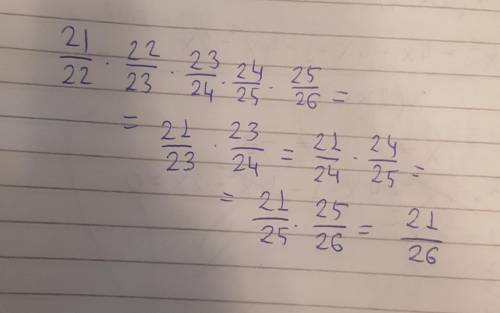 21/22 · 22/23 · 23/24 · 24/25 · 25/26 =
= 21/23 · 23/24 = 21/24 · 24/25 =
= 21/25 · 25/26 = 21/26